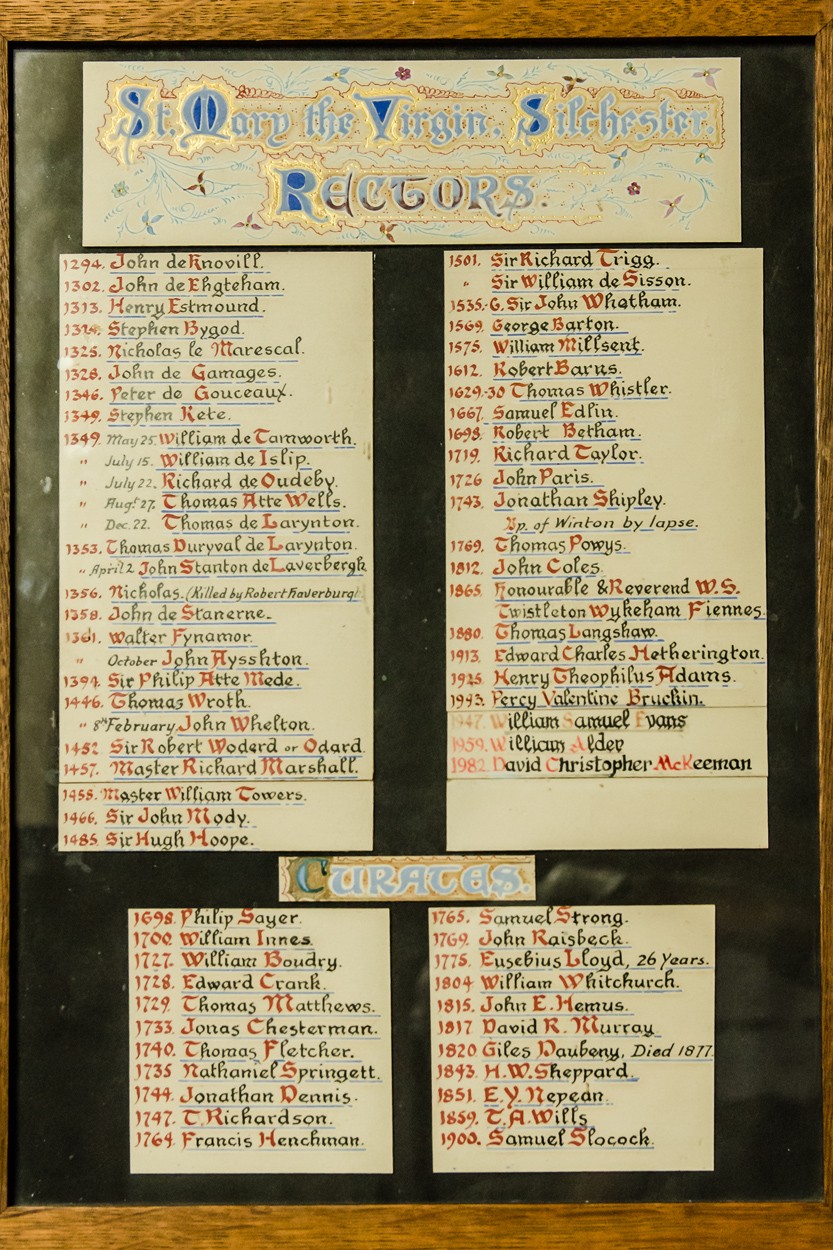 St. Mary the Virgin. Silchester.
Rectors.
1294. John de Knovill.
1302. John de Ehgteham.
1313. Henry Estmound.
Stephen Bygod.
1325. Nicholas le Marescal.
1328. John de Gamages.
1346. Peter de Gouceaux.
1349. Stephen Kete.
1349. May 25. William de Tamworth.
" July 15. William de Islip.
" July 22. Richard de Oudeby.
" Augt. 27. Thomas Atte Wells.
" Dec. 22. Thomas de Larynton.
1353. Thomas Duryval de Larynton.
" April 2 John Stanton de Laverbergh
1356. Nicholas. (Killed by Robert Haverburgh
1358. John de Stanerne.
1361. Walter Fynamor.
" October John Aysshton.
1394. Sir Philip Atte Mede.
1446. Thomas Wroth.
" 8th February. John Whelton.
1452. Sir Robert Woderd or Odard.
1457. Master Richard Marshall.
1458. Master William Towers.
1466. Sir John Mody.
1485. Sir Hugh Hoope.
1501. Sir Richard Trigg.
" Sir William de Sisson.
1535.-6. Sir John Whatham.
1569. George Barton.
1575. William Millsent.
1612. Robert Barns.
1629-30 Thomas Whistler.
1667. Samuel Edlin.
1698. Robert Betham.
1719. Richard Taylor.
1726 John Paris.
1743. Jonathan Shipley.
Bp. of Winton by lapse.
1769. Thomas Powys.
1812. John Coles.
1865. Honourable & Reverend W.S.
Twistleton Wykeham Fiennes.
1880. Thomas Langshaw.
1913. Edward Charles Hetherington.
1925. Henry Theophilus Adams.
1943. Percy Valentine Bruckin.
1947. William Samuel Evans
1959. William Alder
1982. David Christopher McKeeman
Curates.
1698. Philip Sayer.
1700. William Innes.
1727. William Boudry.
1728. Edward Crank.
1729. Thomas Matthews.
1733. Jonas Chesterman.
1740. Thomas Fletcher.
1735 Nathaniel Springett.
1744. Jonathan Dennis.
1747. T. Richardson.
1764. Francis Henchman.
1765. Samuel Strong.
1769. John Raisbeck.
1775. Eusebius Lloyd, 26 Years.
1804 William Whitchurch.
1815. John E. Hemus.
1817 David R. Murray
1820 Giles Daubeny, Died 1877.
1843. H.W. Sheppard.
1851. E.Y. Nepean.
1859. T.A. Wills
1900. Samuel Slocock.